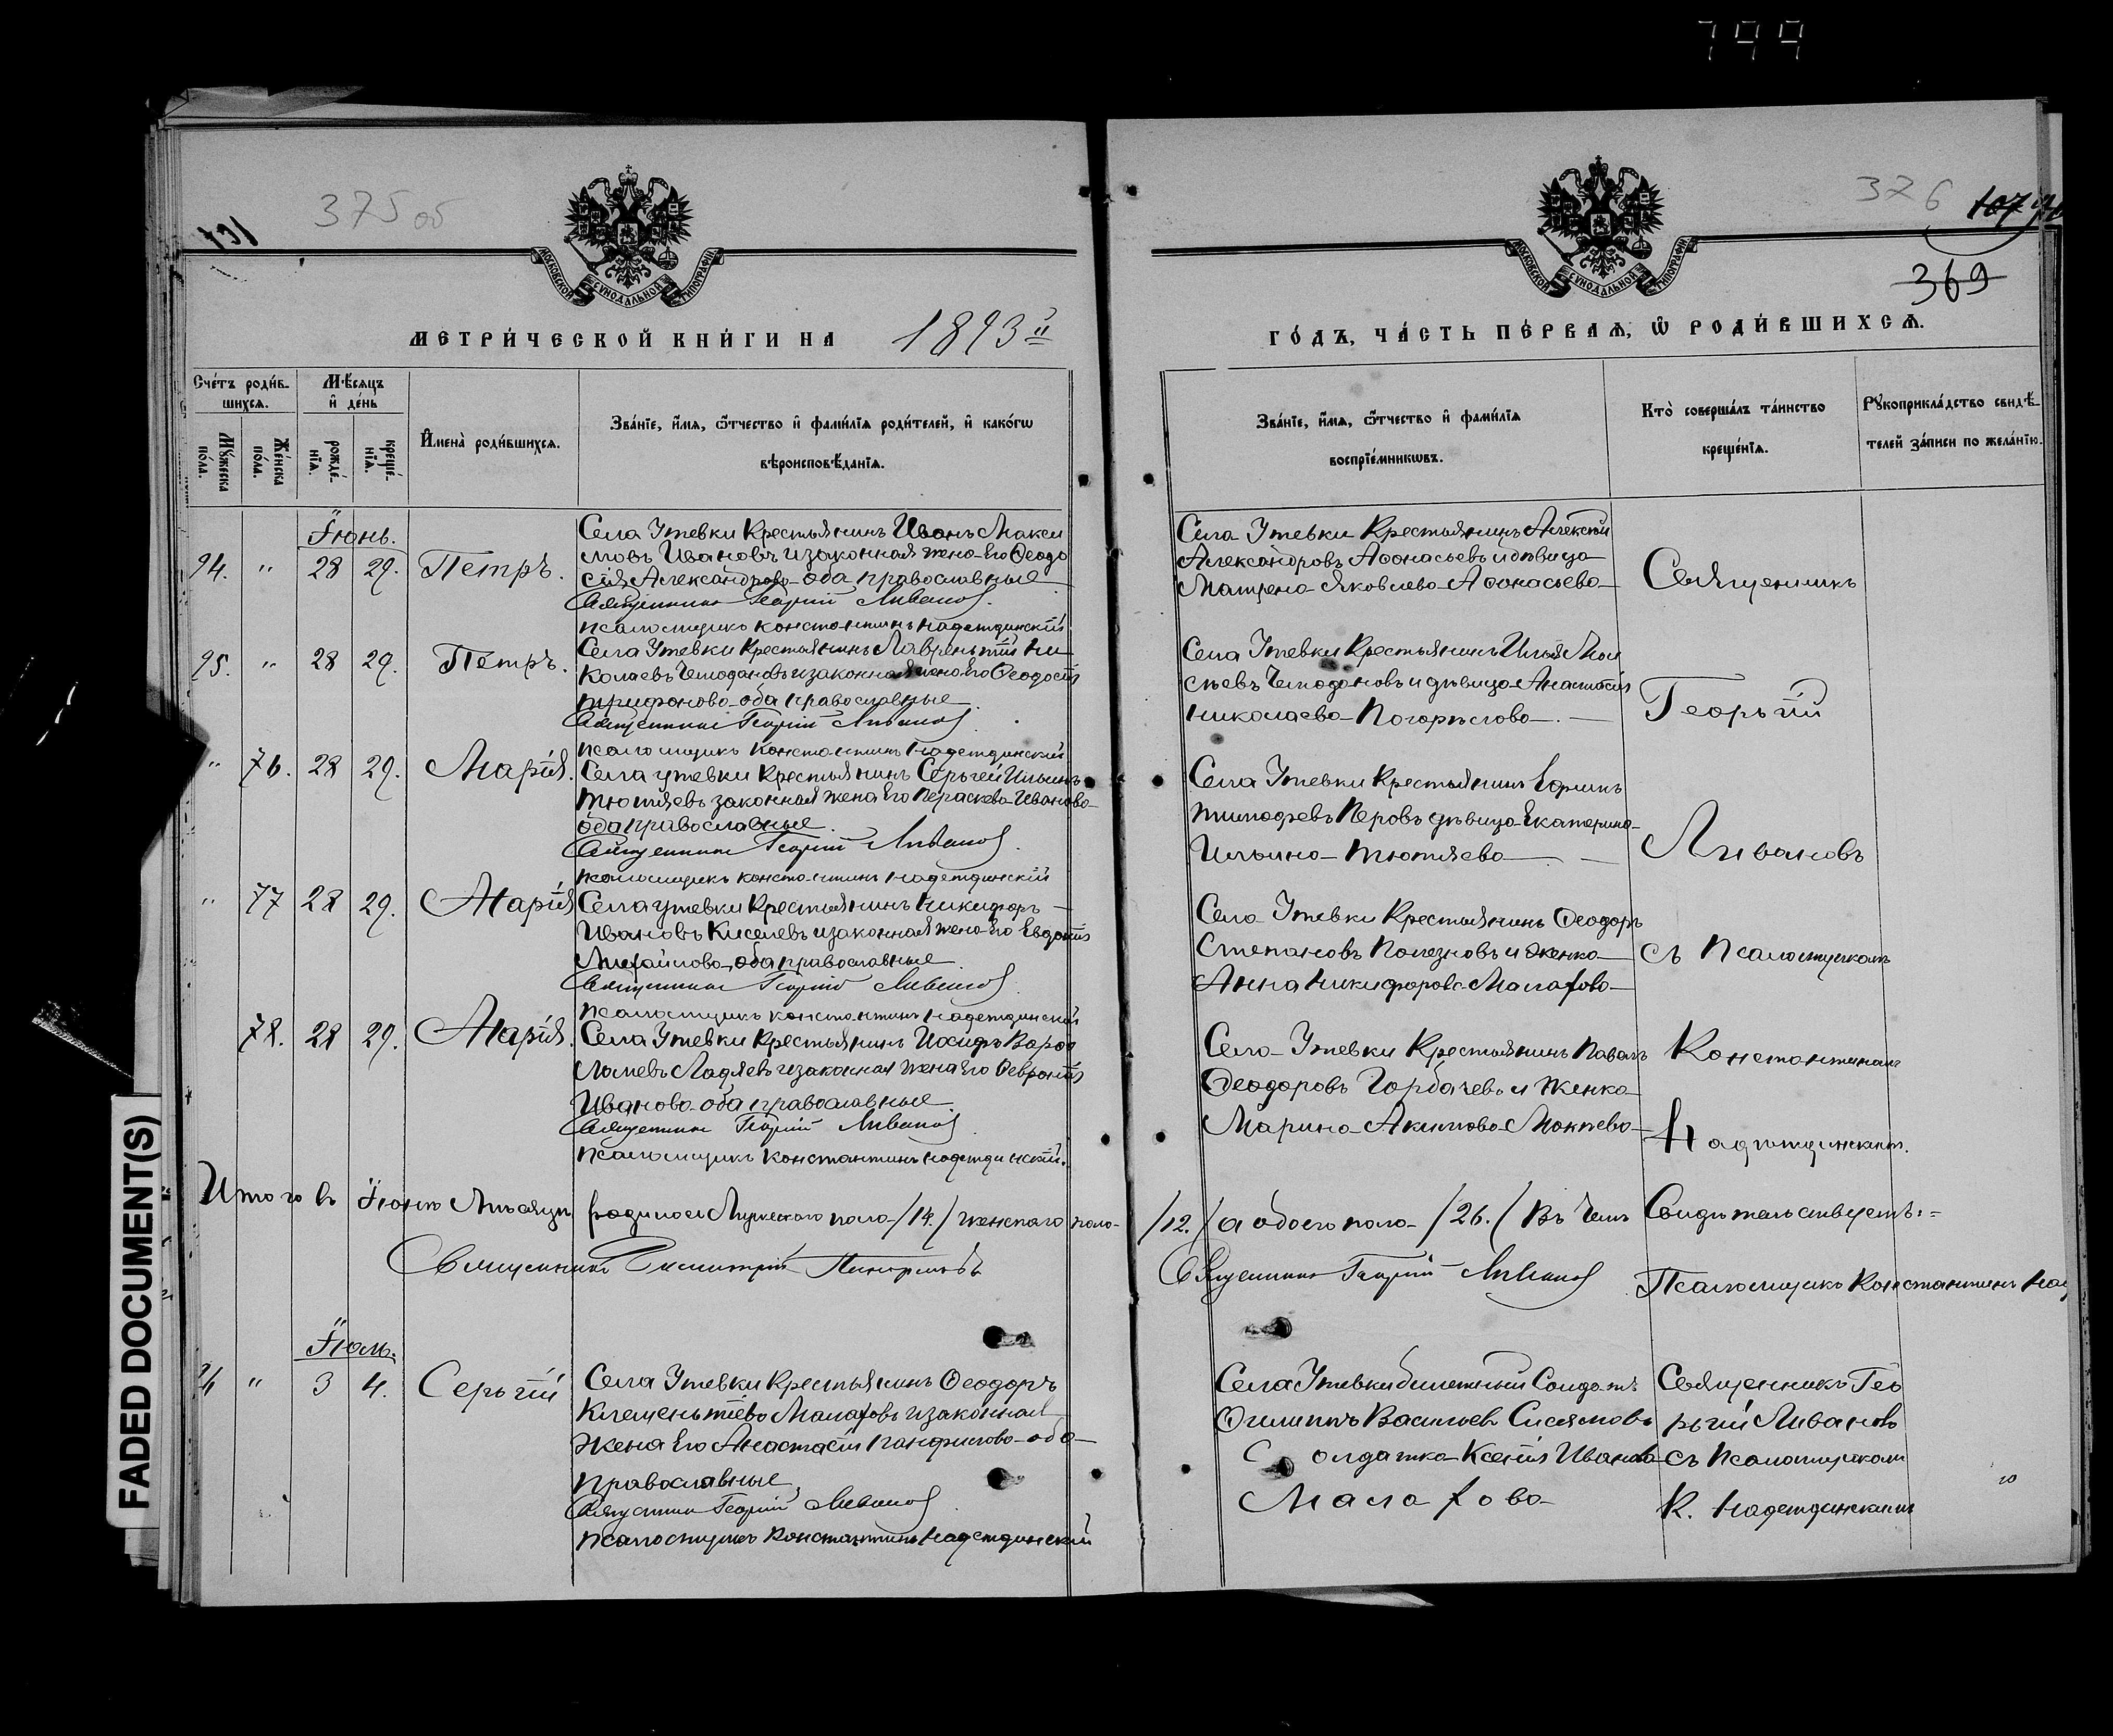 799
375 об
376
107
369
МОСКОВСКОЙ СѴНОДАЛЬНОЙ ТИПОГРАФІИ
МОСКОВСКОЙ СѴНОДАЛЬНОЙ ТИПОГРАФІИ
МЕТРИ́ЧЕСКОЙ КНИ́ГИ НА 1893й
ГО́ДЪ, ЧА́СТЬ ПЕ́РВАѦ, Ѽ РОДИ́ВШИХСѦ.
Сче́тъ роди́в-
шихсѧ.
Мꙋ́жеска по́ла.
Же́нска по́ла.
Мѣ́сѧцъ и҆ де́нь
рожде́-нїѧ.
креще́-нїѧ.
И҆мена̀ роди́вшихсѧ.
Зва́нїе, и҆́мѧ, ѻ҆́тчество и҆ фами́лїѧ роди́телей, и҆ како́гѡ
вѣроисповѣ́данїѧ.
Зва́нїе, и҆́мѧ, ѻ҆́тчество и҆ фами́лїѧ
воспрїе́мникѡвъ.
Кто̀ соверша́лъ та́инство
креще́нїѧ.
Рꙋкоприкла́дство свидѣ́-
телей за́писи по жела́нїю.
Іюнь.
94. " 28 29. Петръ.
Села Утевки Крестьянинъ Иванъ Макси
мовъ Ивановъ и законная жена его Ѳеодо
сія Александрова оба православные
Священникъ Георгій Ливановъ.
Псаломщикъ Константинъ Надеждинскій
Села Утевки Крестьянинъ Алексѣй
Александровъ Аѳонасьевъ и дѣвица
Матрена Яковлева Аѳонасьева
Священникъ
95. " 28 29. Петръ.
Села Утевки Крестьянинъ Лаврентій Ни
колаевъ Чемодановъ и законная жена его Ѳеодосія
Трифонова оба православные
Священникъ Георгій Ливановъ.
Псаломщикъ Константинъ Надеждинскій
Села Утевки Крестьянинъ Илья Мои
сѣевъ Чемодановъ и дѣвица Анастасія
Николаева Погорѣлова
Георгій
" 76. 28 29. Марія.
Села Утевки Крестьянинъ Сергѣй Ильинъ
Тютяевъ законная жена его Пераскева Иванова
оба православные.
Священникъ Георгій Ливановъ.
Псаломщикъ Константинъ Надеждинскій
Села Утевки Крестьянинъ Ефимъ
Тимофѣевъ Перовъ дѣвица Екатерина
Ильина Тютяева
Ливановъ
" 77 28 29. Марія
Села Утевки Крестьянинъ Никифоръ
Ивановъ Киселевъ и законная жена его Евдокія
Михайлова, оба православные.
Священникъ Георгій Ливановъ.
Псаломщикъ Константинъ Надеждинскій
Села Утевки Крестьянинъ Ѳеодоръ
Степановъ Полезновъ и женка
Анна Никифорова Малахова
съ Псаломщикомъ
78. 28 29. Марія.
Села Утевки Крестьянинъ Іосифъ Варѳо
ломевъ Ладяевъ и законная жена его Ѳевронія
Иванова оба православные.
Священникъ Георгій Ливановъ.
Псаломщикъ Константинъ Надеждинскій.
Села Утевки Крестьянинъ Павелъ
Ѳеодоровъ Горбачевъ и женка
Марина Акимова Мокѣева
Константиномъ
Надеждинскимъ.
Итого въ Іюнѣ Мѣсяцѣ родилось Мужескаго пола /14./ женскаго пола
/12./ а обоего пола /26./ Въ чемъ Свидѣтельствуемъ:
Священникъ Димитрій
Священникъ Георгій Ливановъ
Псаломщикъ Константинъ Над
Іюль.
" 3 4. Сергій
Села Утевки Крестьянинъ Ѳеодоръ
Клементіевъ Малаховъ и законная
жена его Анастасія Панфилова оба
Православные.
Священникъ Георгій Ливановъ.
Псаломщикъ Константинъ Надеждинскій
Села Утевки билетный Солдатъ
Филиппъ Васильевъ
Солдатка Ксенія Иванова
Малахова
Священникъ Гео
ргій Ливановъ
съ Псаломщикомъ
К. Надеждинскимъ
FADED DOCUMENT(S)